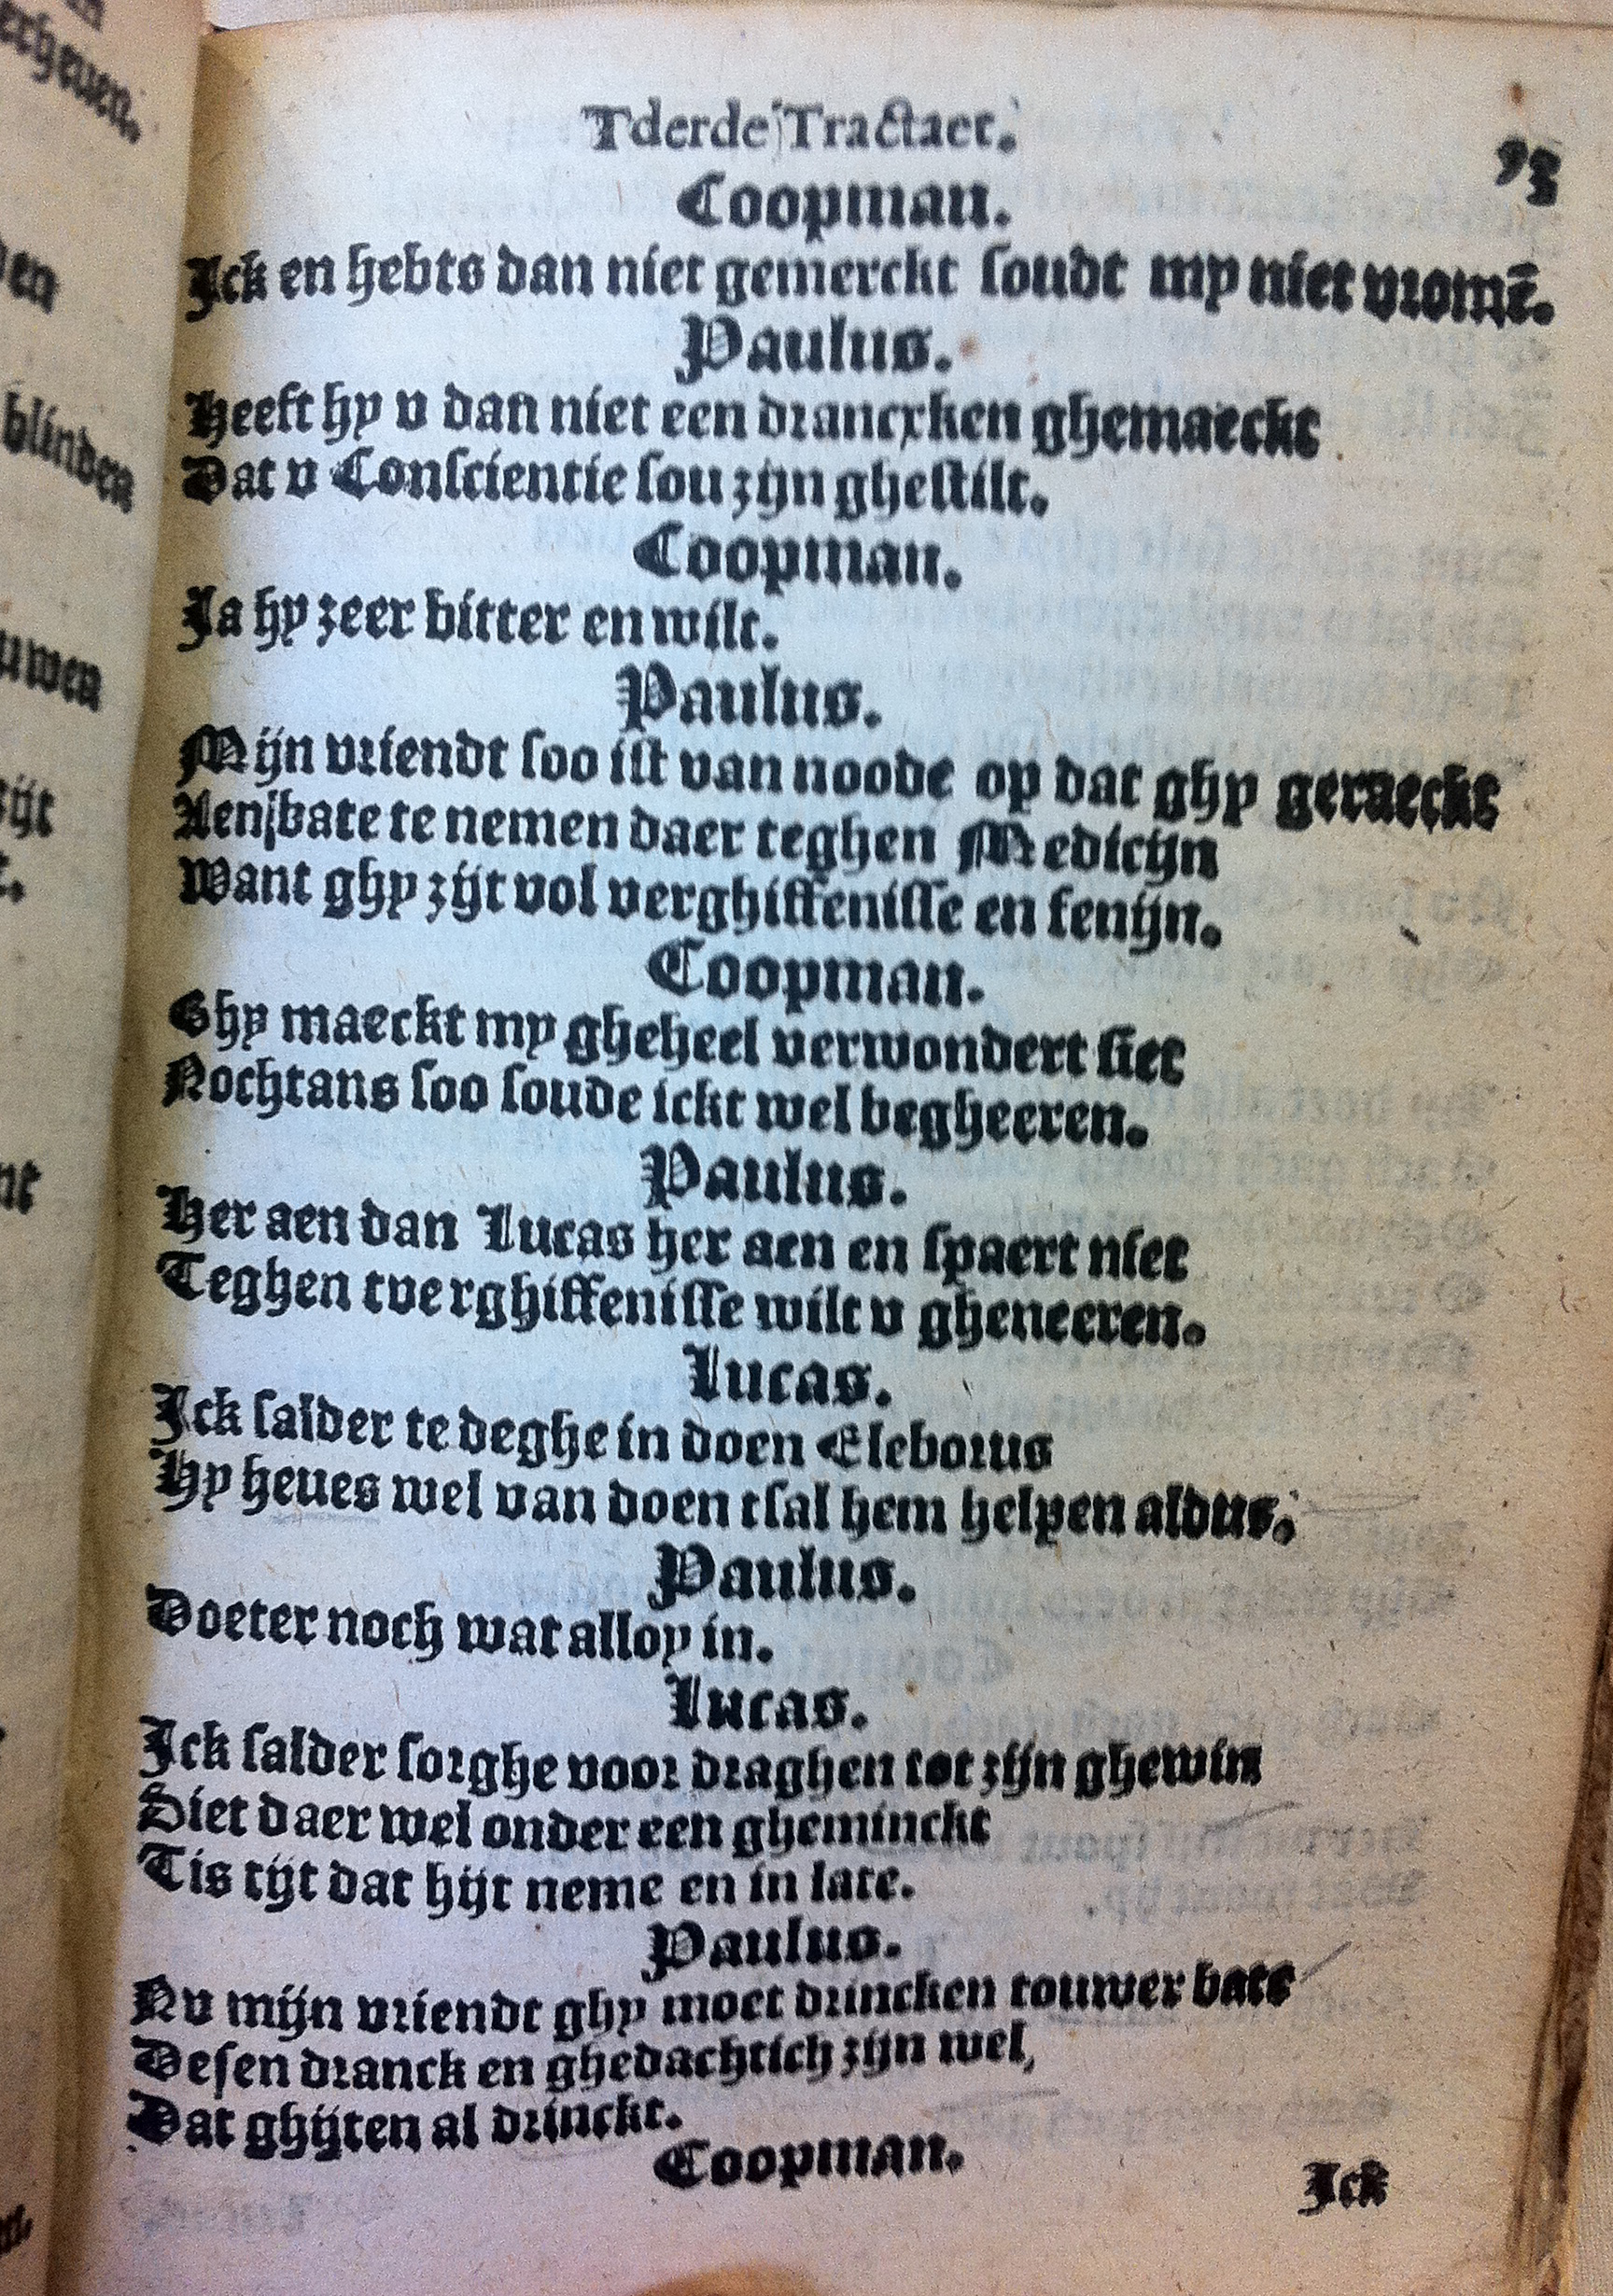 Tderde Tractaet.
93
Coopman.
Ick en hebts dan niet gemerckt soudt my niet vromē.
Paulus.
Heeft hy v dan niet een drancxken ghemaeckt
Dat v Conscientie sou zijn ghestilt.
Coopman.
Ja hy zeer bitter en wilt.
Paulus.
Mijn vriendt soo ist van noode op dat ghy geraeckt
Aen bate te nemen daer teghen Medicijn
Want ghy zijt vol verghiffenisse en fenijn.
Coopman.
Ghy maeckt my gheheel verwondert siet
Nochtans soo soude ickt wel begheeren.
Paulus.
Her aen dan Lucas her aen en spaert niet
Teghen tverghiffenisse wilt v gheneeren.
Lucas.
Ick salder te deghe in doen Eleborus
Hy heues wel van doen tsal hem helpen aldus.
Paulus.
Doeter noch wat alloy in.
Lucas.
Ick salder sorghe voor draghen tot zijn ghewin
Siet daer wel onder een gheminckt
Tis tijt dat hijt neme en in late.
Paulus.
Nu mijn vriendt ghy moet drincken touwer bate
Desen dranck en ghedachtich zijn wel,
Dat ghijten al drinckt.
Coopman.
Ick
erheuen.
blinden
uwen